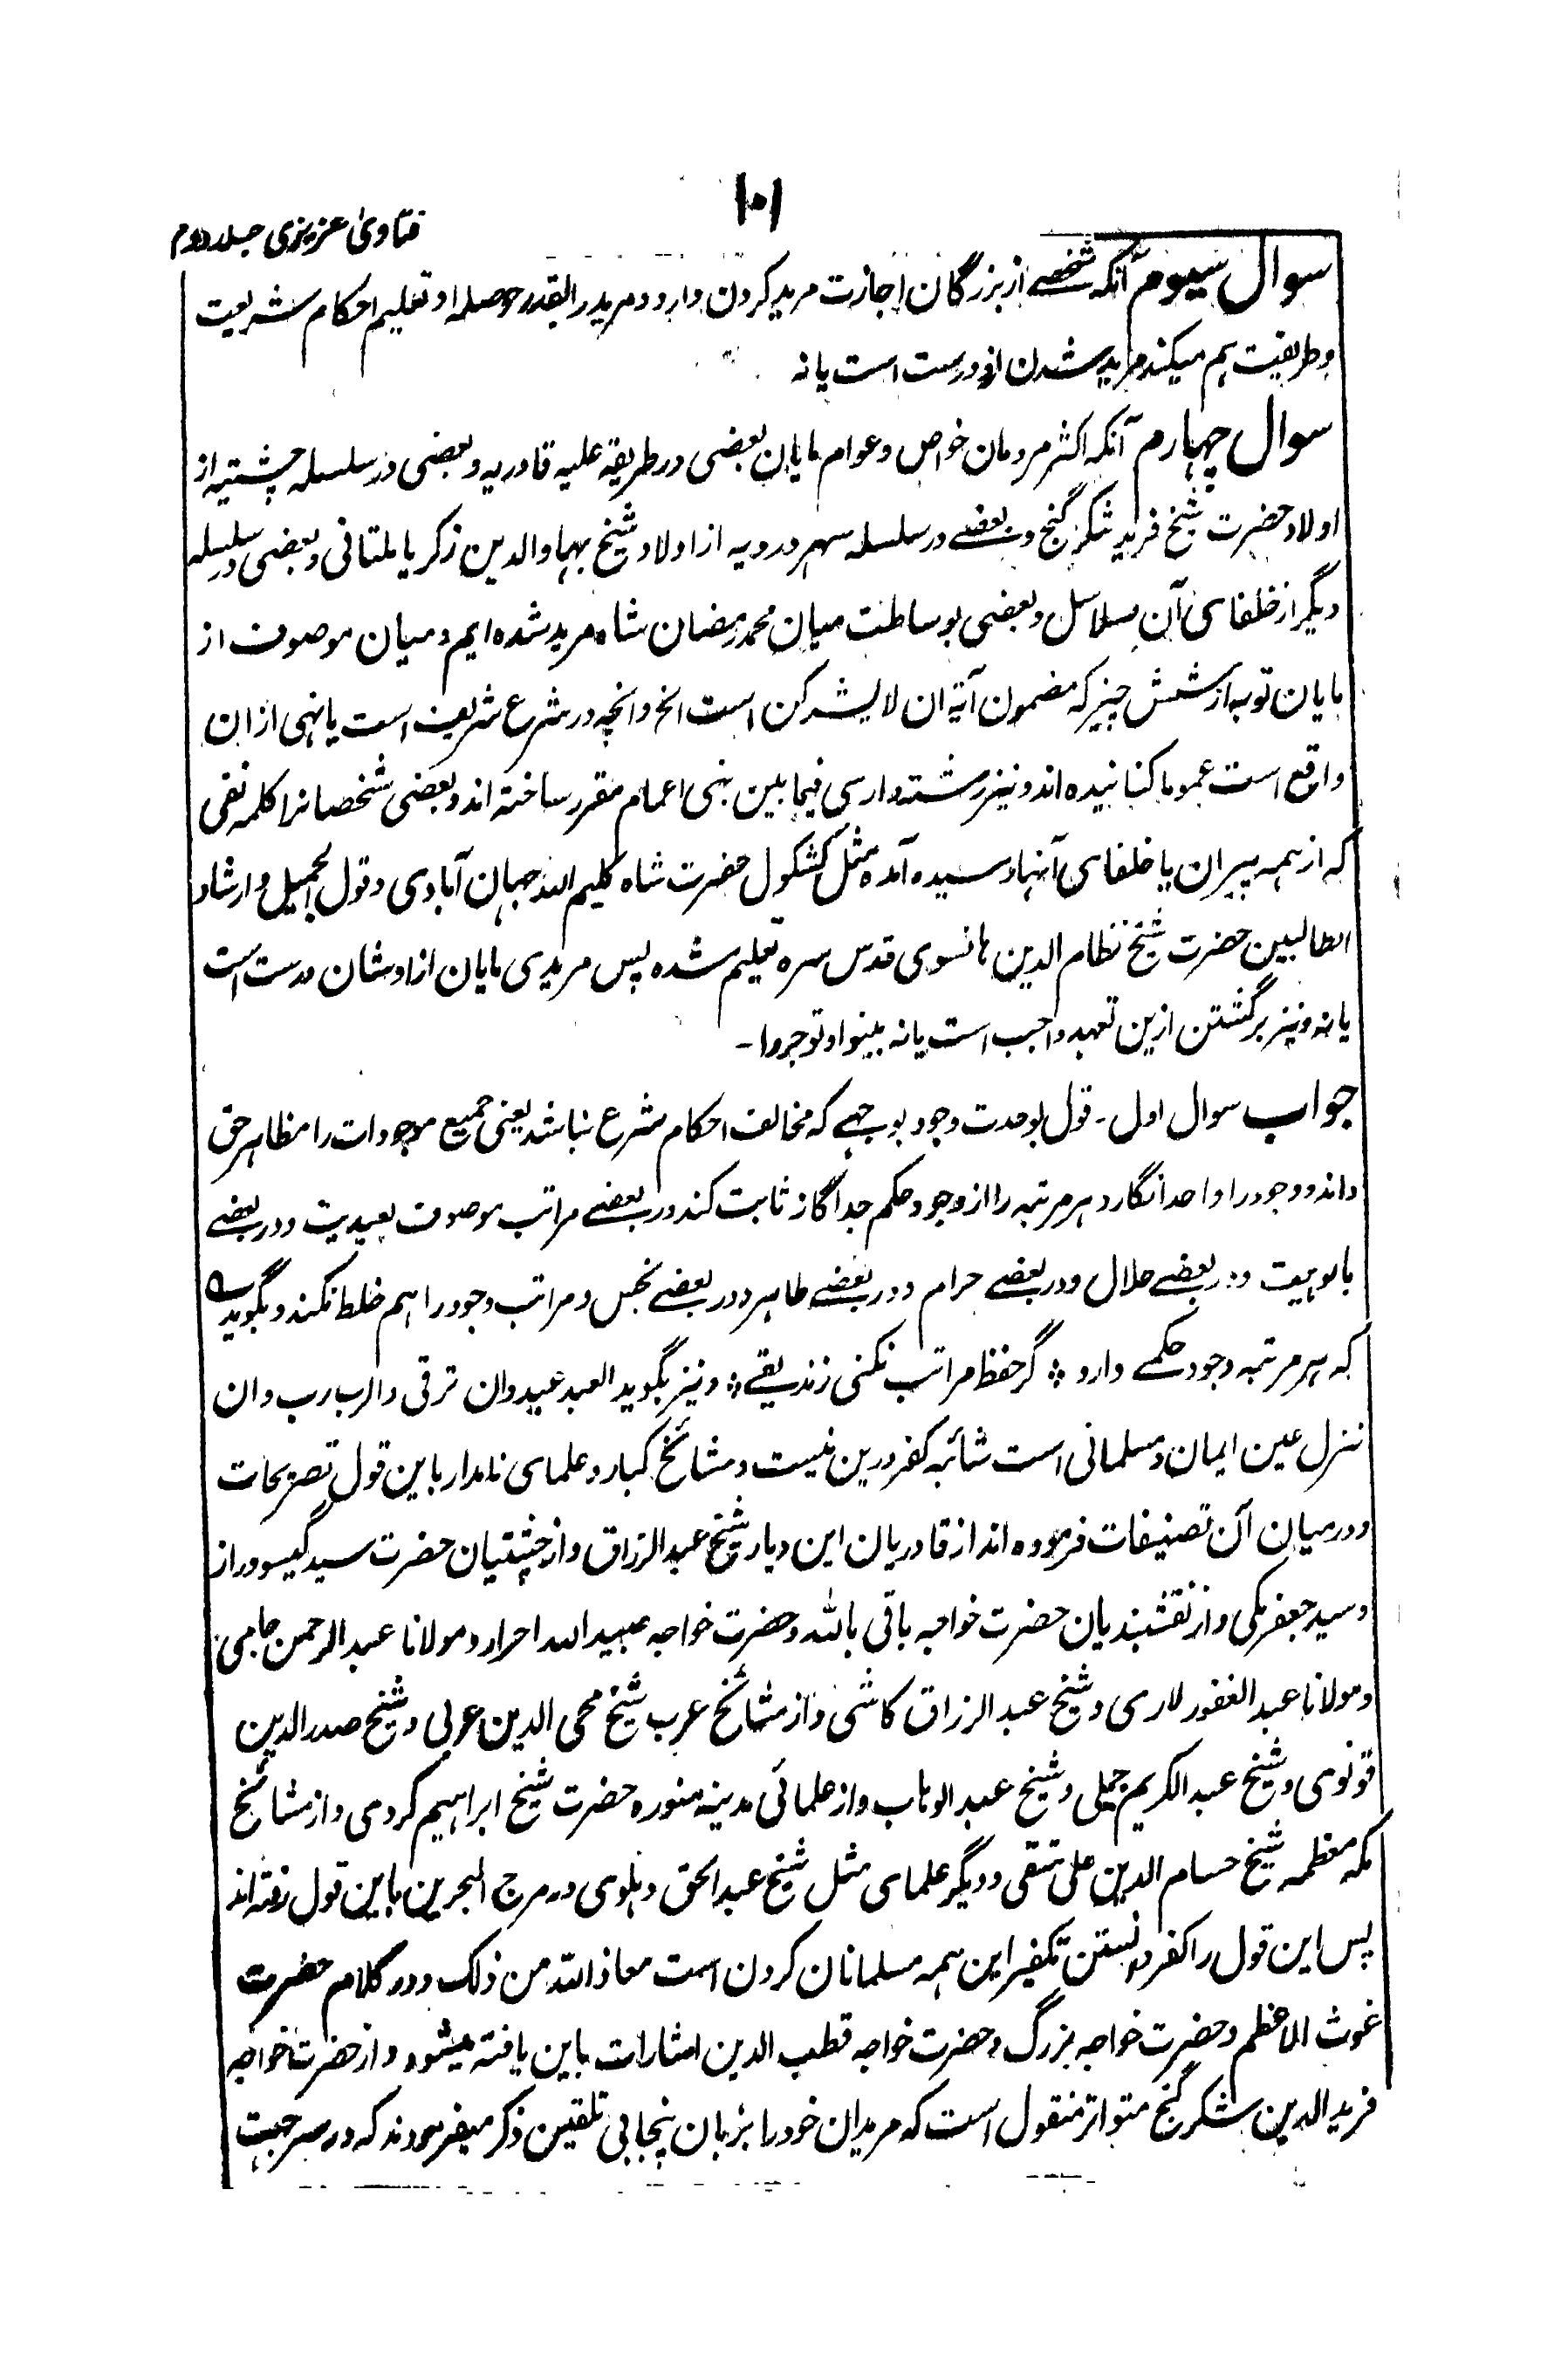 ۱۰۱
فتاویٰ عزیزی جلد دوم
سوال سیوم آنکہ شخصے از بزرگان اجازت مرید کردن دارد و مرید را بقدر حوصلہ او تعلیم احکام شریعت
و طریقت ہم میکند مرید شدن ازو درست است یا نہ
سوال چہارم آنکہ اکثر مردمان خواص و عوام مایان بعضی در طریقہ علیہ قادریہ و بعضی در سلسلہ چشتیہ از
اولاد حضرت شیخ فرید شکر گنج و بعضے در سلسلہ سہروردیہ از اولاد شیخ بہاوالدین زکریا ملتانی و بعضی در سلسلہ
دیگر از خلفای آن سلاسل و بعضی بوساطت میان محمد رمضان شاہ مرید شدہ ایم و میان موصوف از
مایان توبہ از شش چیز کہ مضمون آیۃ ان لا یشرکن است الخ و انچہ در شرع شریف است یا نہی از ان
واقع است عموما کنانیدہ اند و نیز رشتہ داری فیمابین بنی اعمام مقرر ساختہ اند و بعضی شخصانرا کلمہ نفی
کہ از ہمہ پیران یا خلفای آنہا رسیدہ آمدہ مثل کشکول حضرت شاہ کلیم اللہ جہان آبادی و قول الجمیل و ارشاد
الطالبین حضرت شیخ نظام الدین ہانسوی قدس سرہ تعلیم شدہ پس مریدی مایان از اوشان درست است
یا نہ و نیز برگشتن ازین تعہد واجب است یا نہ بینوا و توجروا ۔
جواب سوال اول ۔ قول بوحدت وجود بوجہے کہ مخالف احکام شرع نباشد یعنی جمیع موجودات را مظاہر حق
داند و وجود را واحد انگارد ہر مرتبہ را از وجود حکم جداگانہ ثابت کند در بعضے مراتب موصوف بعبدیت و در بعضے
بالوہیت و در بعضے حلال و در بعضے حرام و در بعضے طاہر و در بعضے نجس و مراتب وجود را ہم خلط نکند و بگوید ؎
کہ ہر مرتبہ وجود حکمے دارد ؞ گر حفظ مراتب نکنی زندیقے ؞ و نیز بگوید العبد عبد وان ترقی والرب رب وان
تنزل عین ایمان و مسلمانی است شائبہ کفر درین نیست و مشائخ کبار و علمای نامدار باین قول تصریحات
و درمیان آن تصنیفات فرمودہ اند از قادریان این دیار شیخ عبدالرزاق و از چشتیان حضرت سید گیسودراز
و سید جعفر مکی و از نقشبندیان حضرت خواجہ باقی باللہ و حضرت خواجہ عبید اللہ احرار و مولانا عبدالرحمن جامی
و مولانا عبدالغفور لاری و شیخ عبدالرزاق کاشی و از مشائخ عرب شیخ محی الدین عربی و شیخ صدرالدین
قونوی و شیخ عبدالکریم جیلی و شیخ عبدالوہاب و از علمائی مدینہ منورہ حضرت شیخ ابراہیم کردی و از مشائخ
مکہ معظمہ شیخ حسام الدین علی متقی و دیگر علمای مثل شیخ عبدالحق دہلوی در مرج البحرین باین قول رفتہ اند
پس این قول را کفر دانستن تکفیر این ہمہ مسلمانان کردن است معاذ اللہ من ذلک و در کلام حضرت
غوث الاعظم و حضرت خواجہ بزرگ و حضرت خواجہ قطب الدین اشارات باین یافتہ میشود و از حضرت خواجہ
فریدالدین شکر گنج متواتر منقول است کہ مریدان خود را بزبان پنجابی تلقین ذکر میفرمودند کہ در ہر جہت